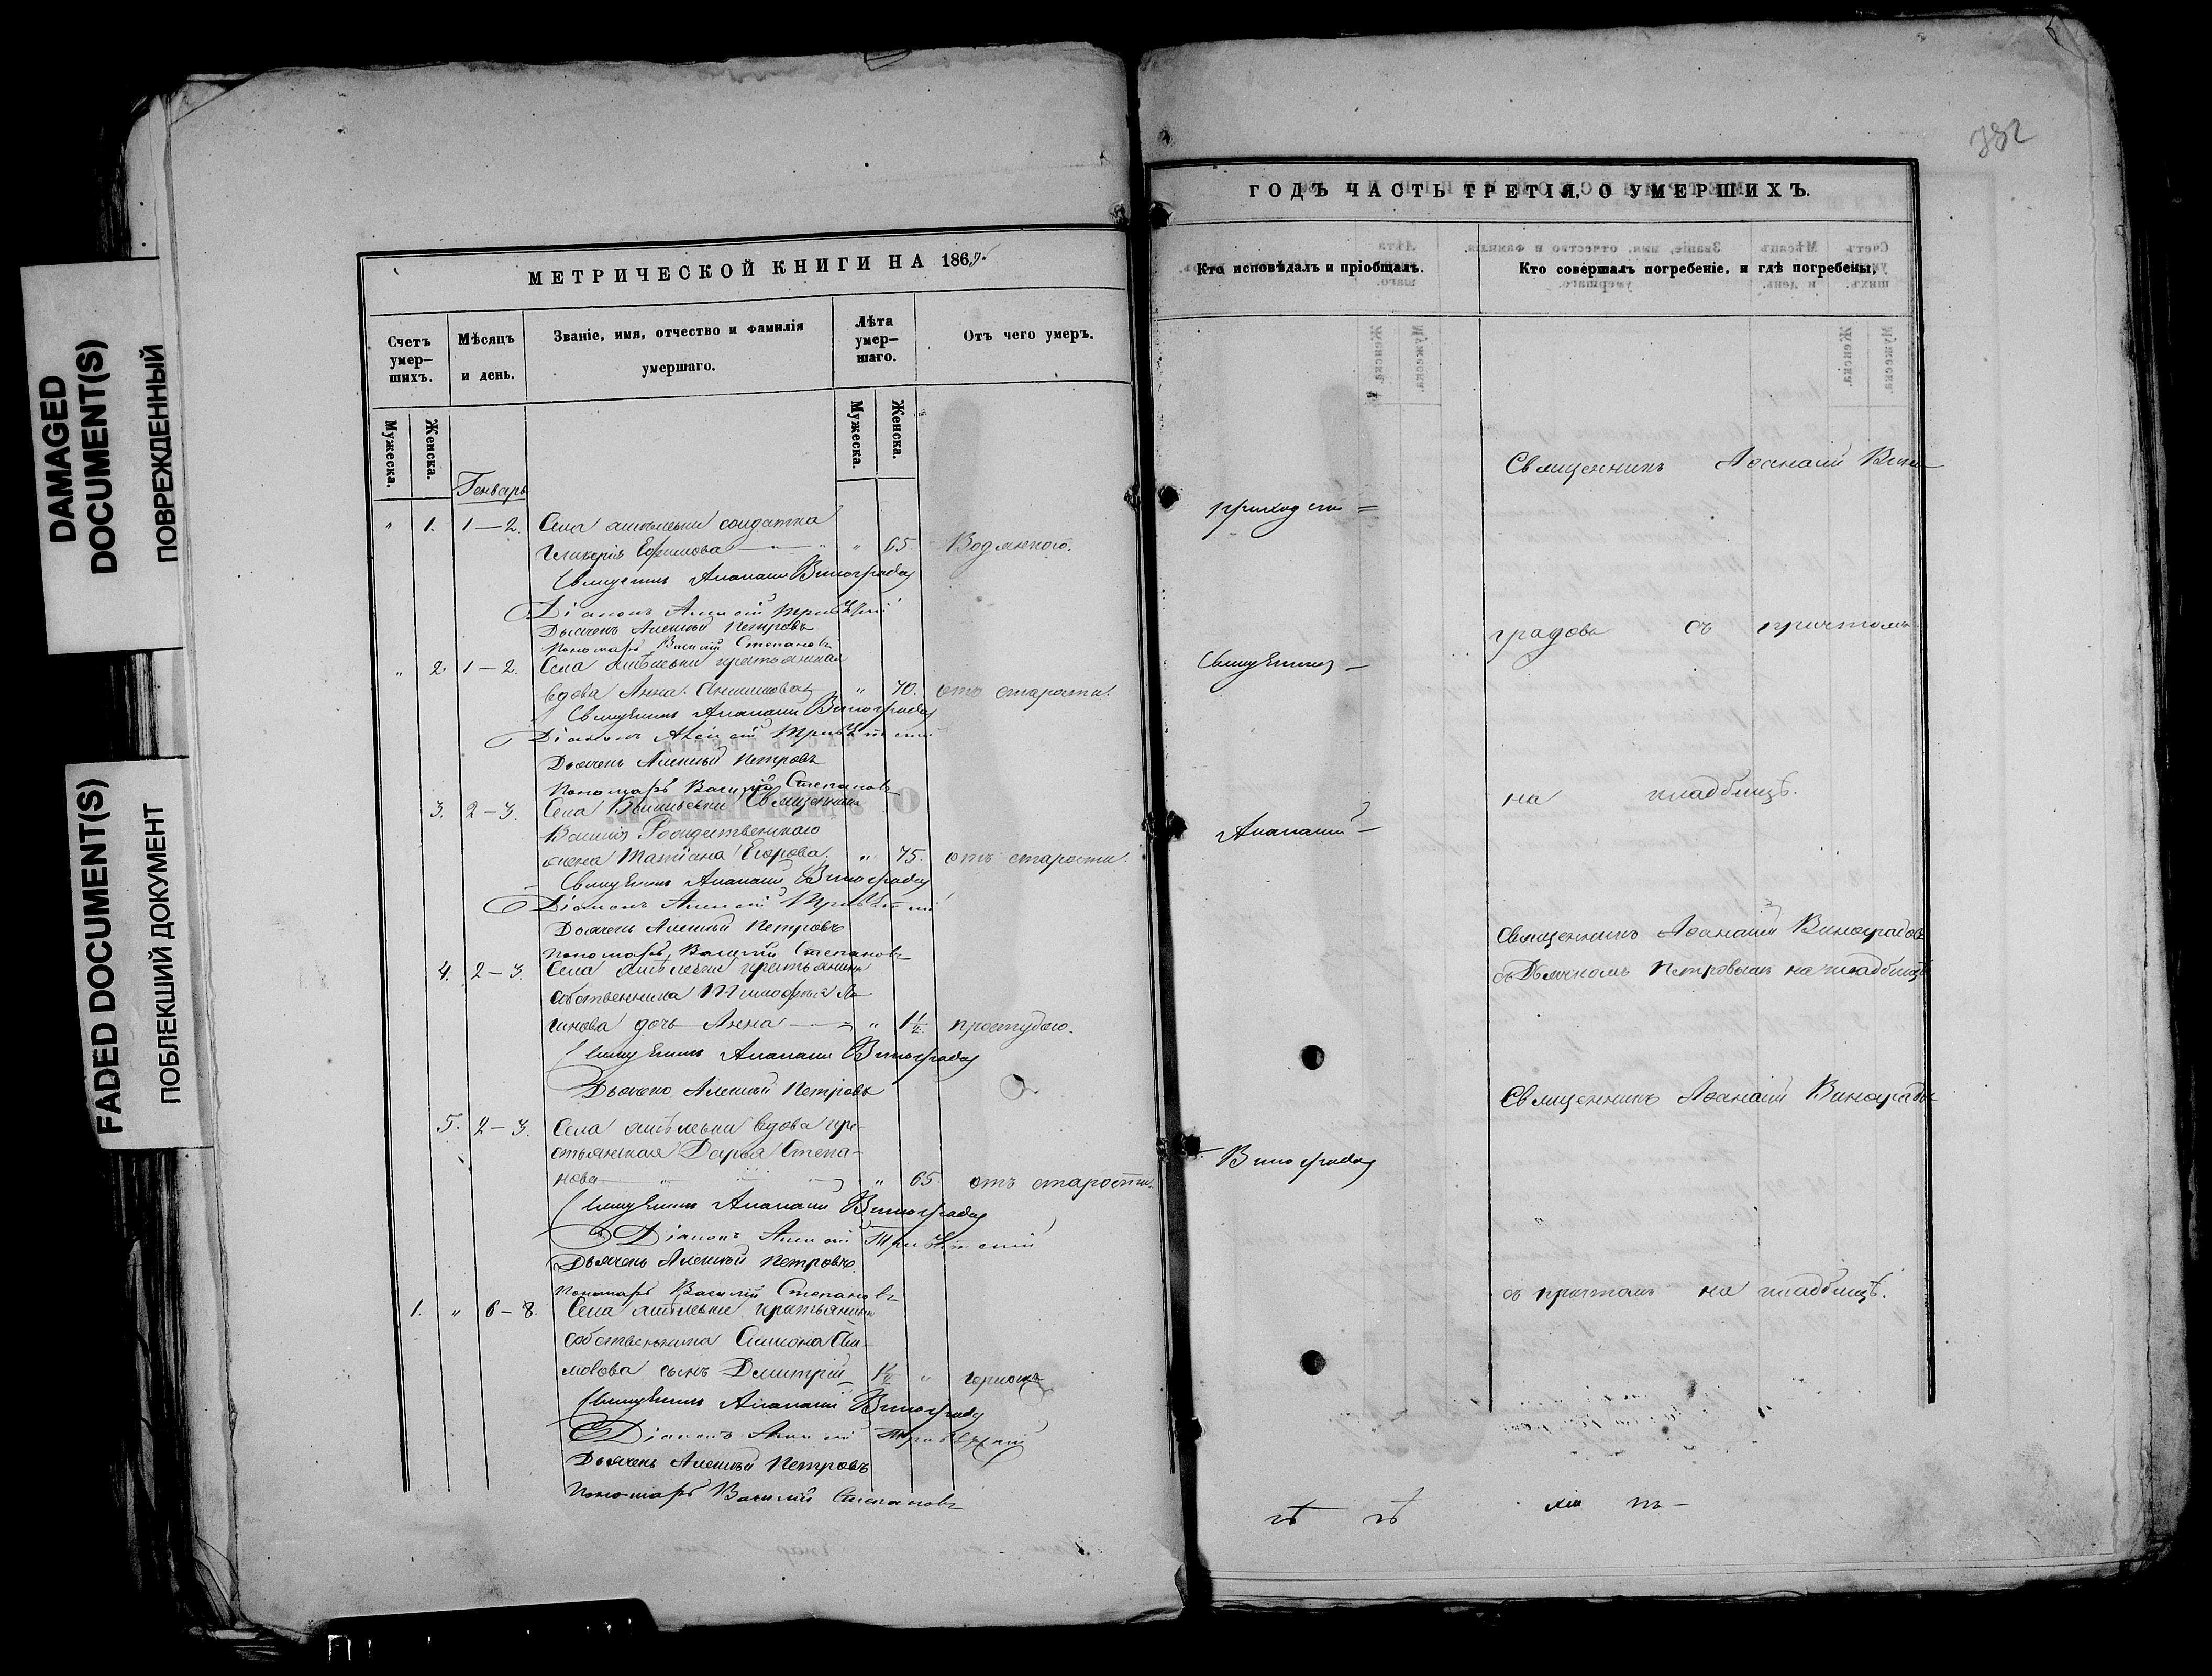 DAMAGED
DOCUMENT(S)
ПОВРЕЖДЕННЫЙ
FADED DOCUMENT(S)
ПОБЛЕКШИЙ ДОКУМЕНТ
МЕТРИЧЕСКОЙ КНИГИ НА 186
Счетъ умер-шихъ.
Мѣсяцъ и день.
Званіе, имя, отчество и фамилія умершаго.
Лѣта умер-шаго.
Отъ чего умеръ.
Мужеска.
Женска.
Мужеска.
Женска.
Генварь
" 1. 1—2. Села солдатка
Гликерія Ефимова " 65. Водяного.
Священникъ Аѳанасій Виноградовъ
Діаконъ Алексій
Дьячекъ Алексѣй Петровъ
Пономарь Василій Степановъ
" 2. 1—2. Села крестьянская
вдова Анна " 70. отъ старости.
Священникъ Аѳанасій Виноградовъ
Діаконъ Алексій
Дьячекъ Алексѣй Петровъ
Пономарь Василій Степановъ
3. 2—3. Села Священника
Василія Рождественскаго
жена Татіана Егорова. " 75. отъ старости.
Священникъ Аѳанасій Виноградовъ
Діаконъ Алексій
Дьячекъ Алексѣй Петровъ
Пономарь Василій Степановъ
4. 2—3. Села крестьянина
собственника Тимофея Ло-
гинова дочь Анна " 1½. простудою.
Священникъ Аѳанасій Виноградовъ
Дьячекъ Алексѣй Петровъ
5. 2—3. Села вдова кре-
стьянская Дарья Степа-
нова " 65. отъ старости.
Священникъ Аѳанасій Виноградовъ
Діаконъ Алексій
Дьячекъ Алексѣй Петровъ
Пономарь Василій Степановъ
1. " 6—8. Села крестьянина
собственника Симіона
сынъ Дмитрій "
Священникъ Аѳанасій Виноградовъ
Діаконъ Алексій
Дьячекъ Алексѣй Петровъ
Пономарь Василій Степановъ
382
ГОДЪ ЧАСТЬ ТРЕТІЯ, О УМЕРШИХЪ.
Кто исповѣдалъ и пріобщалъ.
Кто совершалъ погребеніе, и гдѣ погребены,
приходскій
Священникъ
Аѳанасій
Виноградовъ
Священникъ Аѳанасій Вино-
градовъ съ причтомъ
на кладбищѣ.
Священникъ Аѳанасій Виноградовъ
съ Дьячкомъ Петровымъ на кладбищѣ
Священникъ Аѳанасій Виноградовъ
съ причтомъ на кладбищѣ.